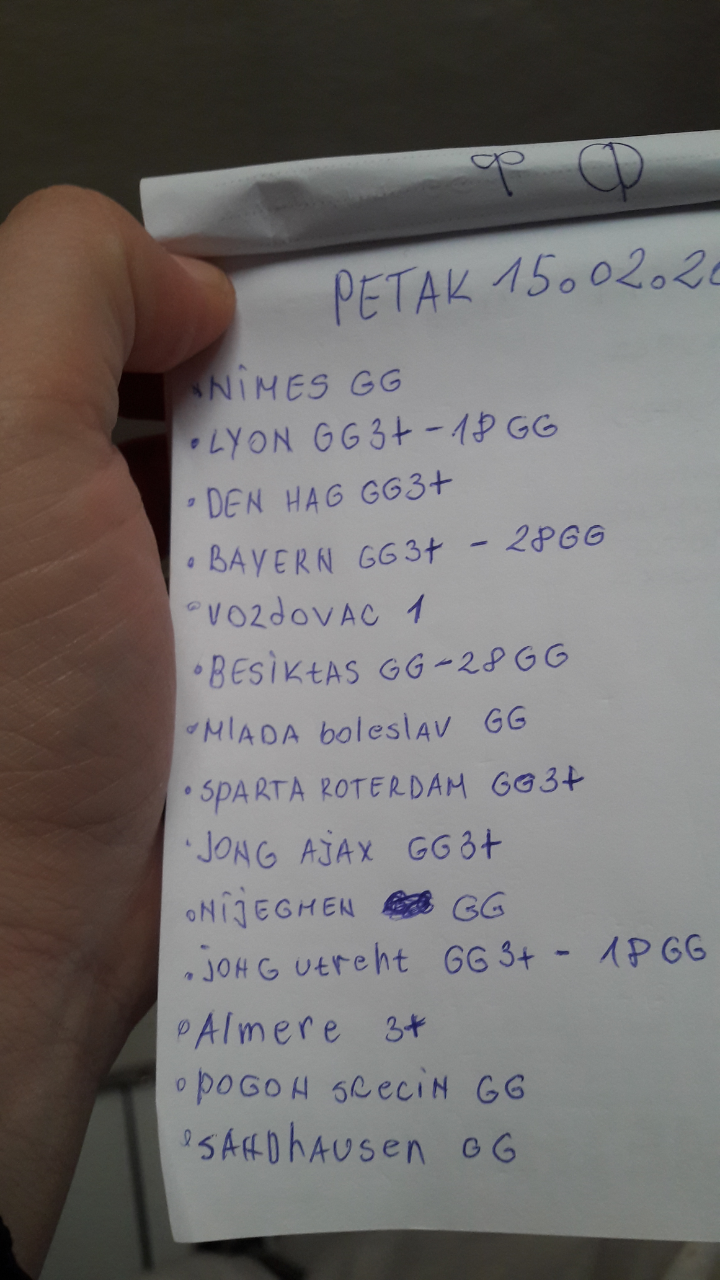 PETAK 15.02.20
NIMES GG
LYON GG3+ - 1P GG
DEN HAG GG3+
BAYERN GG3+ - 2PGG
VOZdOVAC 1
BESIKtAS GG-2PGG
MlADA boleslAV GG
SPARTA ROTERDAM GG3+
JONG AJAX GG3+
NIJEGMEN GG
jONG Utreht GG3+ - 1P GG
Almere 3+
POGON SCeciN GG
SANDhAUSen GG